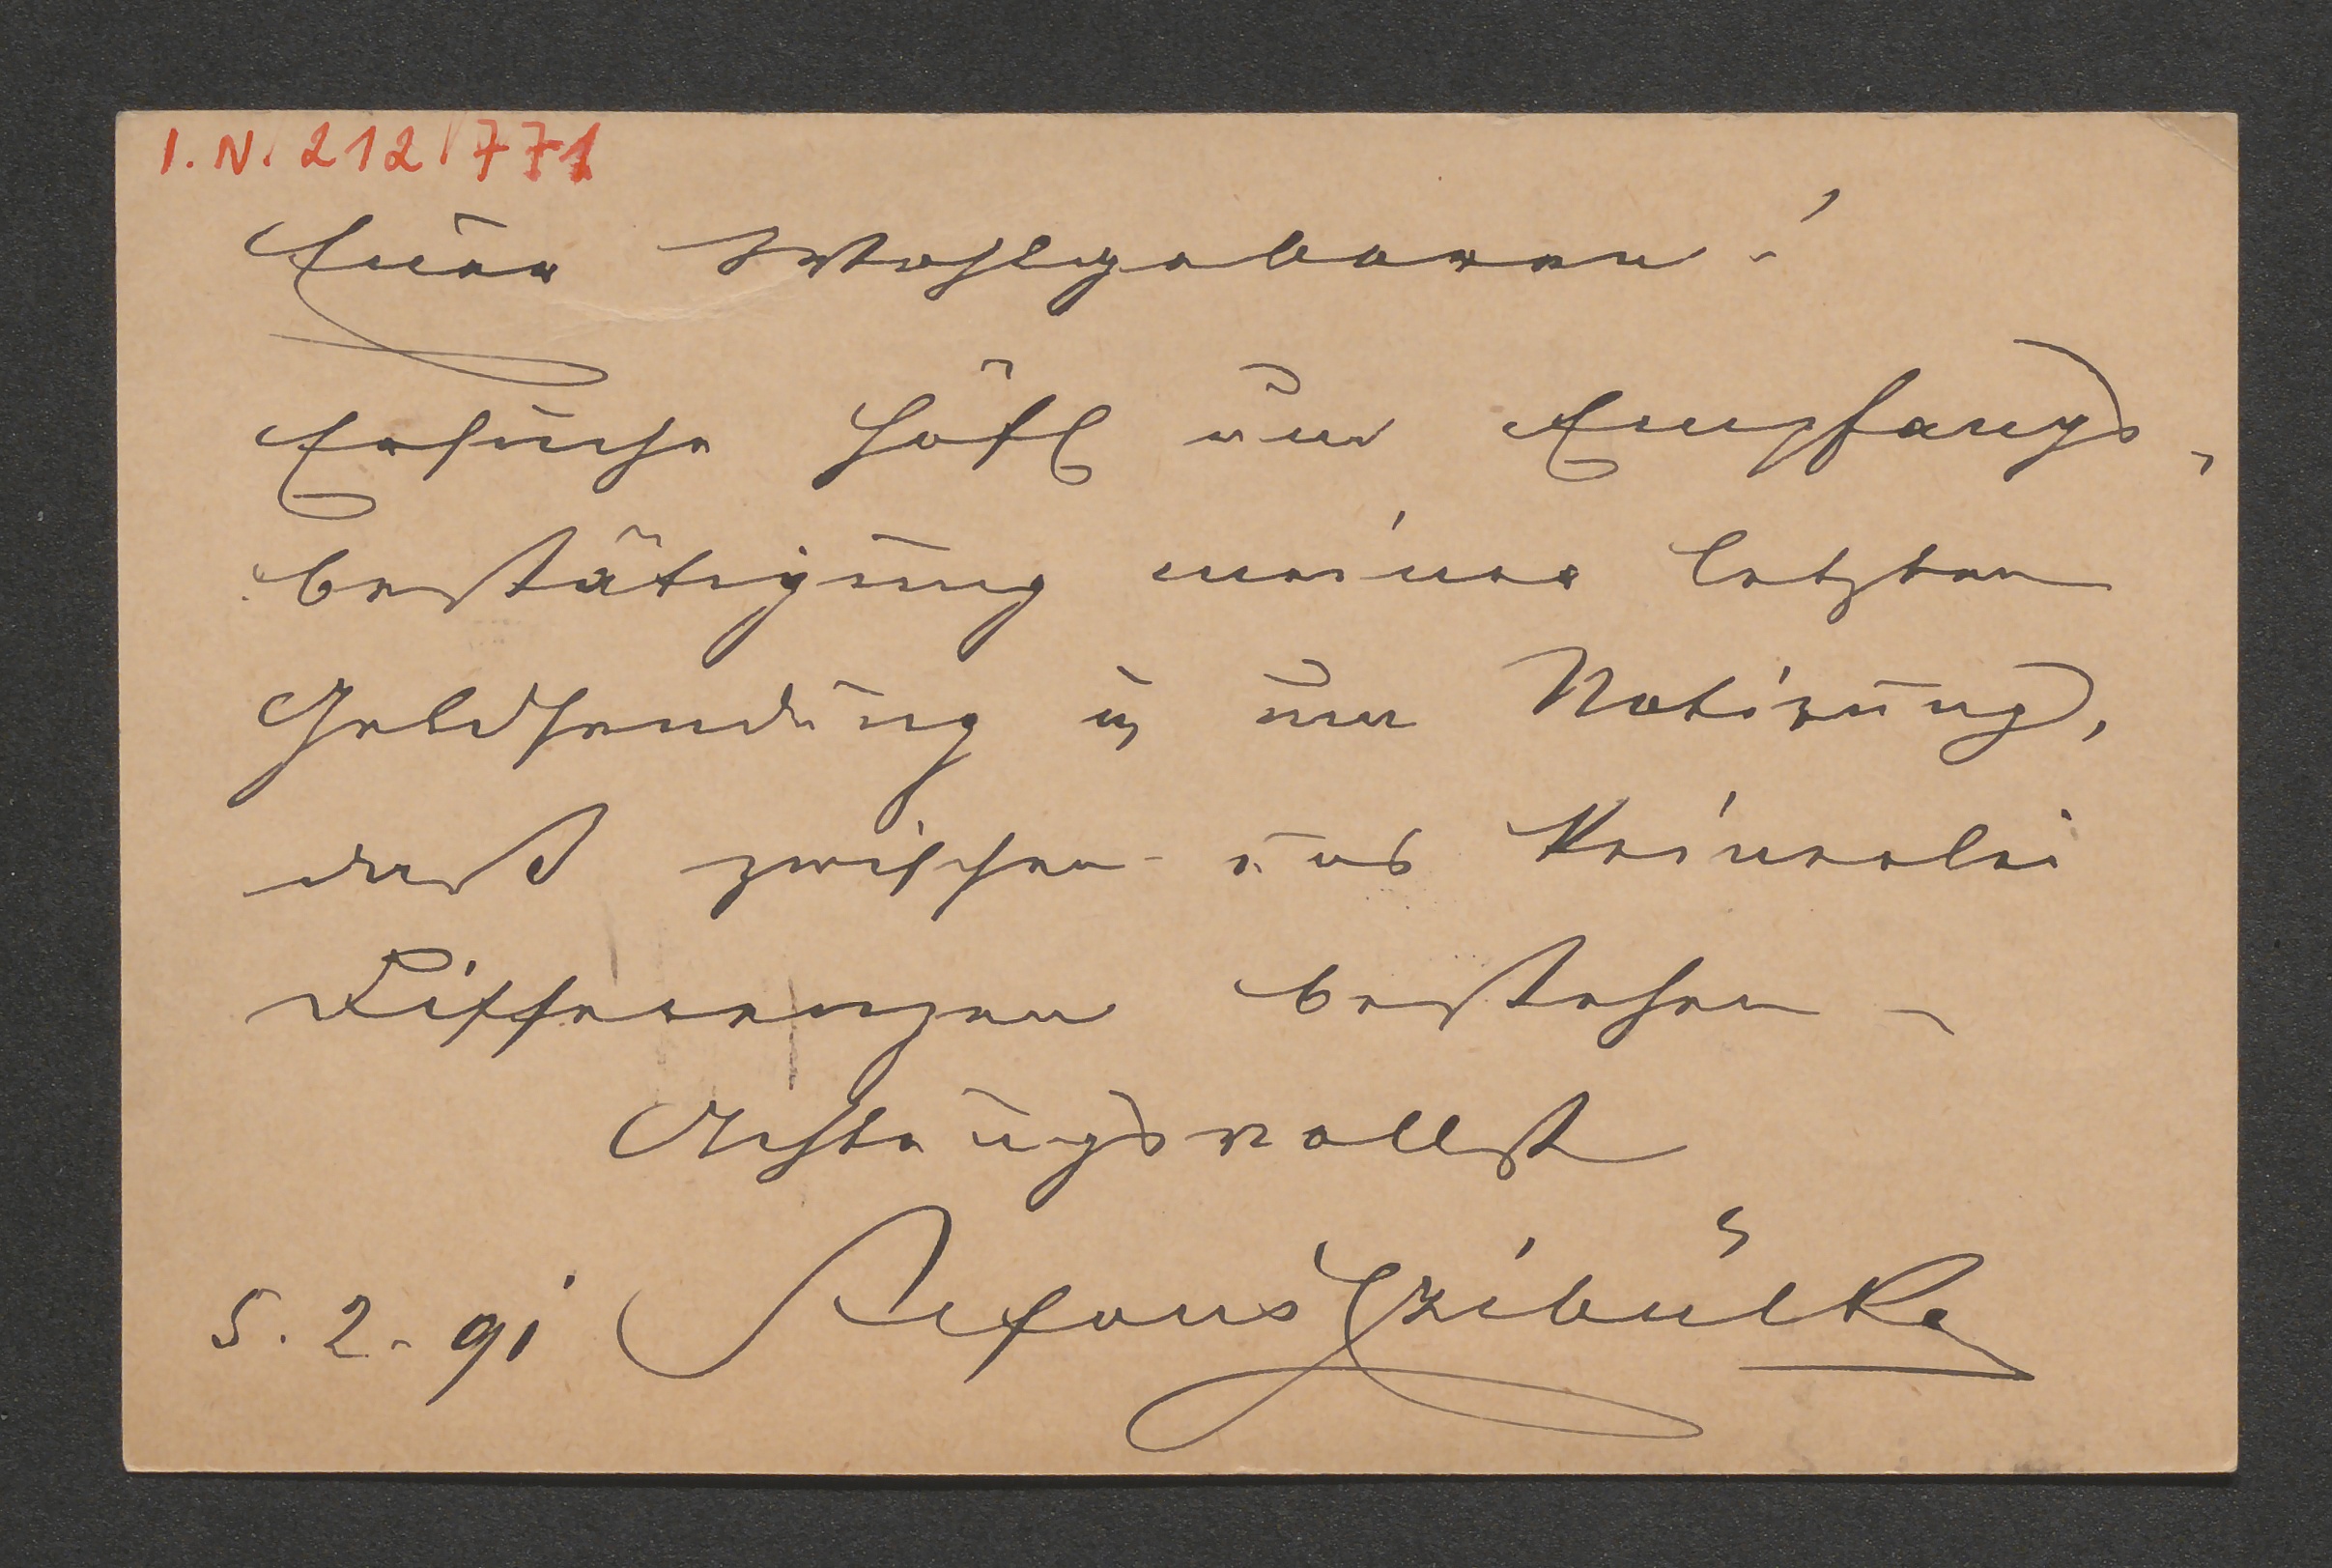 I.N. 212 771
Euer Wohlgeboren!
Ersuche höfl um Empfangs,
bestätigung meiner letzten
Geldsendung u um Notirung,
daß zwischen uns Keinerlei
Differenzen bestehen -
Achtungsvollst
5. 2. 91 Alfons Czibulka